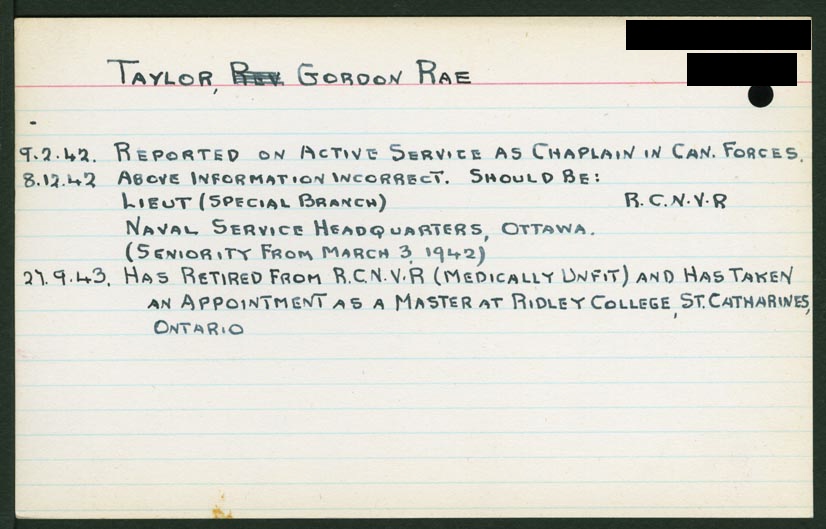 TAYLOR, REV. GORDON RAE
9.2.42. REPORTED ON ACTIVE SERVICE AS CHAPLAIN IN CAN. FORCES.
8.12.42 ABOVE INFORMATION INCORRECT. SHOULD BE:
LIEUT (SPECIAL BRANCH) R.C.N.V.R
NAVAL SERVICE HEADQUARTERS, OTTAWA.
(SENIORITY FROM MARCH 3, 1942)
27.9.43. HAS RETIRED FROM R.C.N.V.R (MEDICALLY UNFIT) AND HAS TAKEN
AN APPOINTMENT AS A MASTER AT RIDLEY COLLEGE, ST. CATHARINES,
ONTARIO